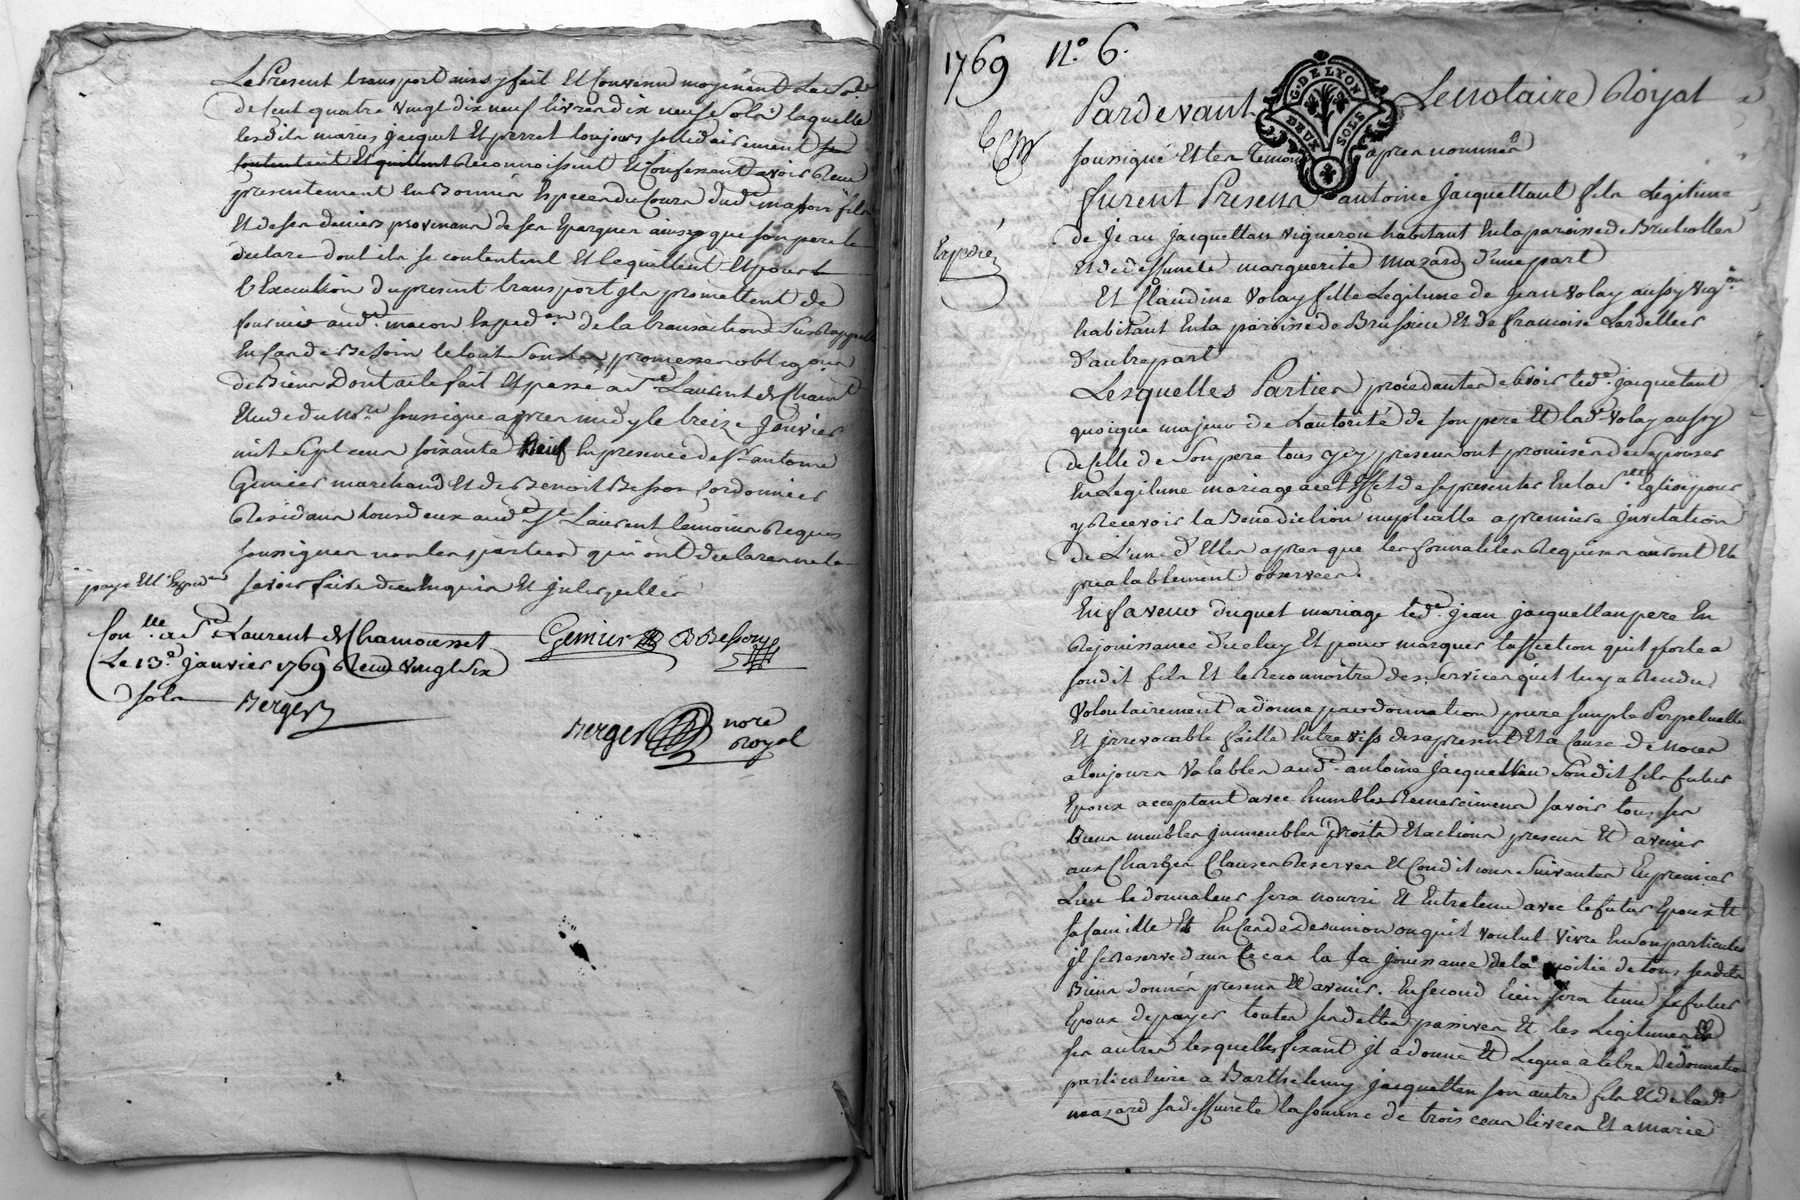 Le Present transport ainsy fait Et Convenu moyenant la so.
de Cent quatre vingt dix neuf livres dix neuf sols laquelle
lesdits maries Jacquet Et perret toujours sollidairement se
contentent Et quittent Reconnoissent Et Confessent avoir Reçu
presentement En Bonnes Especes du Cours dud. masson fils
Et de ses deniers provenans de ses Epargnes ainsy que son pere le
declare dont ils se contentent Et le quittent Et pour
l'Execution du present transport ils promettent de
fournir aud. macon Exped.on de la transaction Susrappellé
En Cas de Besoin le tout Sous les promesses oblig.ons
de Biens Dont acte fait Et passé a St. Laurent de Cham.t
Etude du No.re soussigné apres midy le treize Janvier
mil sept cens soixante Neuf En presence de Sr. antoine
marchand Et de Benoit Besson Cordonnier
Residans tous deux aud. St. Laurent temoins Requis
soussignes non les parties qui ont declarer ne le
savoir faire de ce Enquis Et Interpellés
paye Et Exped.
Con.lle a St. Laurent de Chamousset
Le 13.e janvier 1769 Recu Vingt six
sols Berger
Genier B Besson
Berger nore
Royal
1769 N.o 6.
G. DE LYON
DEUX SOLS
Pardevant Le notaire Royal
soussigné Et les Temoins apres nommés
furent Presens antoine Jacquettant fils Legitime
Expedié
de Jean Jacquettan vigneron habitant En la paroisse de Brulliolles
Et de deffunte marguerite Mazard d'une part
Et Claudine Volay fille Legitime de Jean Volay aussy vig.on
habitant En la paroisse de Brussieu Et de francoise Lardellier
d'autre part
Lesquelles Parties procedantes scavoir led. jacquetant
quoique majeur de L'autorité de son pere Et lad. Volay aussy
de Celle de Son pere tous cy presens ont promis de s'epouser
En Legitime mariage a cet Effet de se presenter En la S.te Eglise pour
y Recevoir la Benediction nuptialle a premiere Invitation
de L'une d'Elles apres que les formalités Requises auront Eté
prealablement observées.
En faveur duquel mariage led. Jean jacquettan pere En
Rejouissance d'iceluy Et pour marquer l'affection qu'il porte a
sondit fils Et le Reconnoitre des Services qu'il luy a Rendus
Volontairement a donné par donnation pure simple Perpetuelle
Et irrevocable faitte Entre vifs des a present Et a Cause de Noces
a toujours Valables aud. antoine Jacquettan Son dit fils futur
Epoux acceptant avec humbles Remercimens savoir tous ses
Biens meubles Immeubles droits Et actions presens Et avenir
aux Charges Clauses Reserves Et Conditions Suivantes En premier
Lieu le donnateur sera nourri Et Entretenu avec le futur Epoux Et
sa famille Et En Cas de desunion ou qu'il voulut vivre En Son particulier
Il se Reserve dans Ce Cas la la jouissance de la moitié de tous sesdits
Biens donnés presens Et avenir. En second Lieu sera tenu le futur
Epoux de payer toutes ses dettes passives Et les Legitimes de
ses autres lesquelles fixant Il a donné Et Legué a titre de donnation
particuliere a Barthelemy Jacquettan son autre fils Et de lad.
mazard sa deffunte la somme de trois cens livres Et a Marie